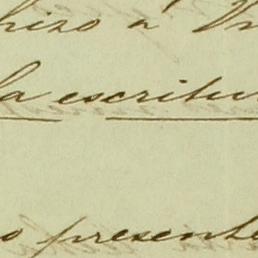 hizo á
la escritu
o presente